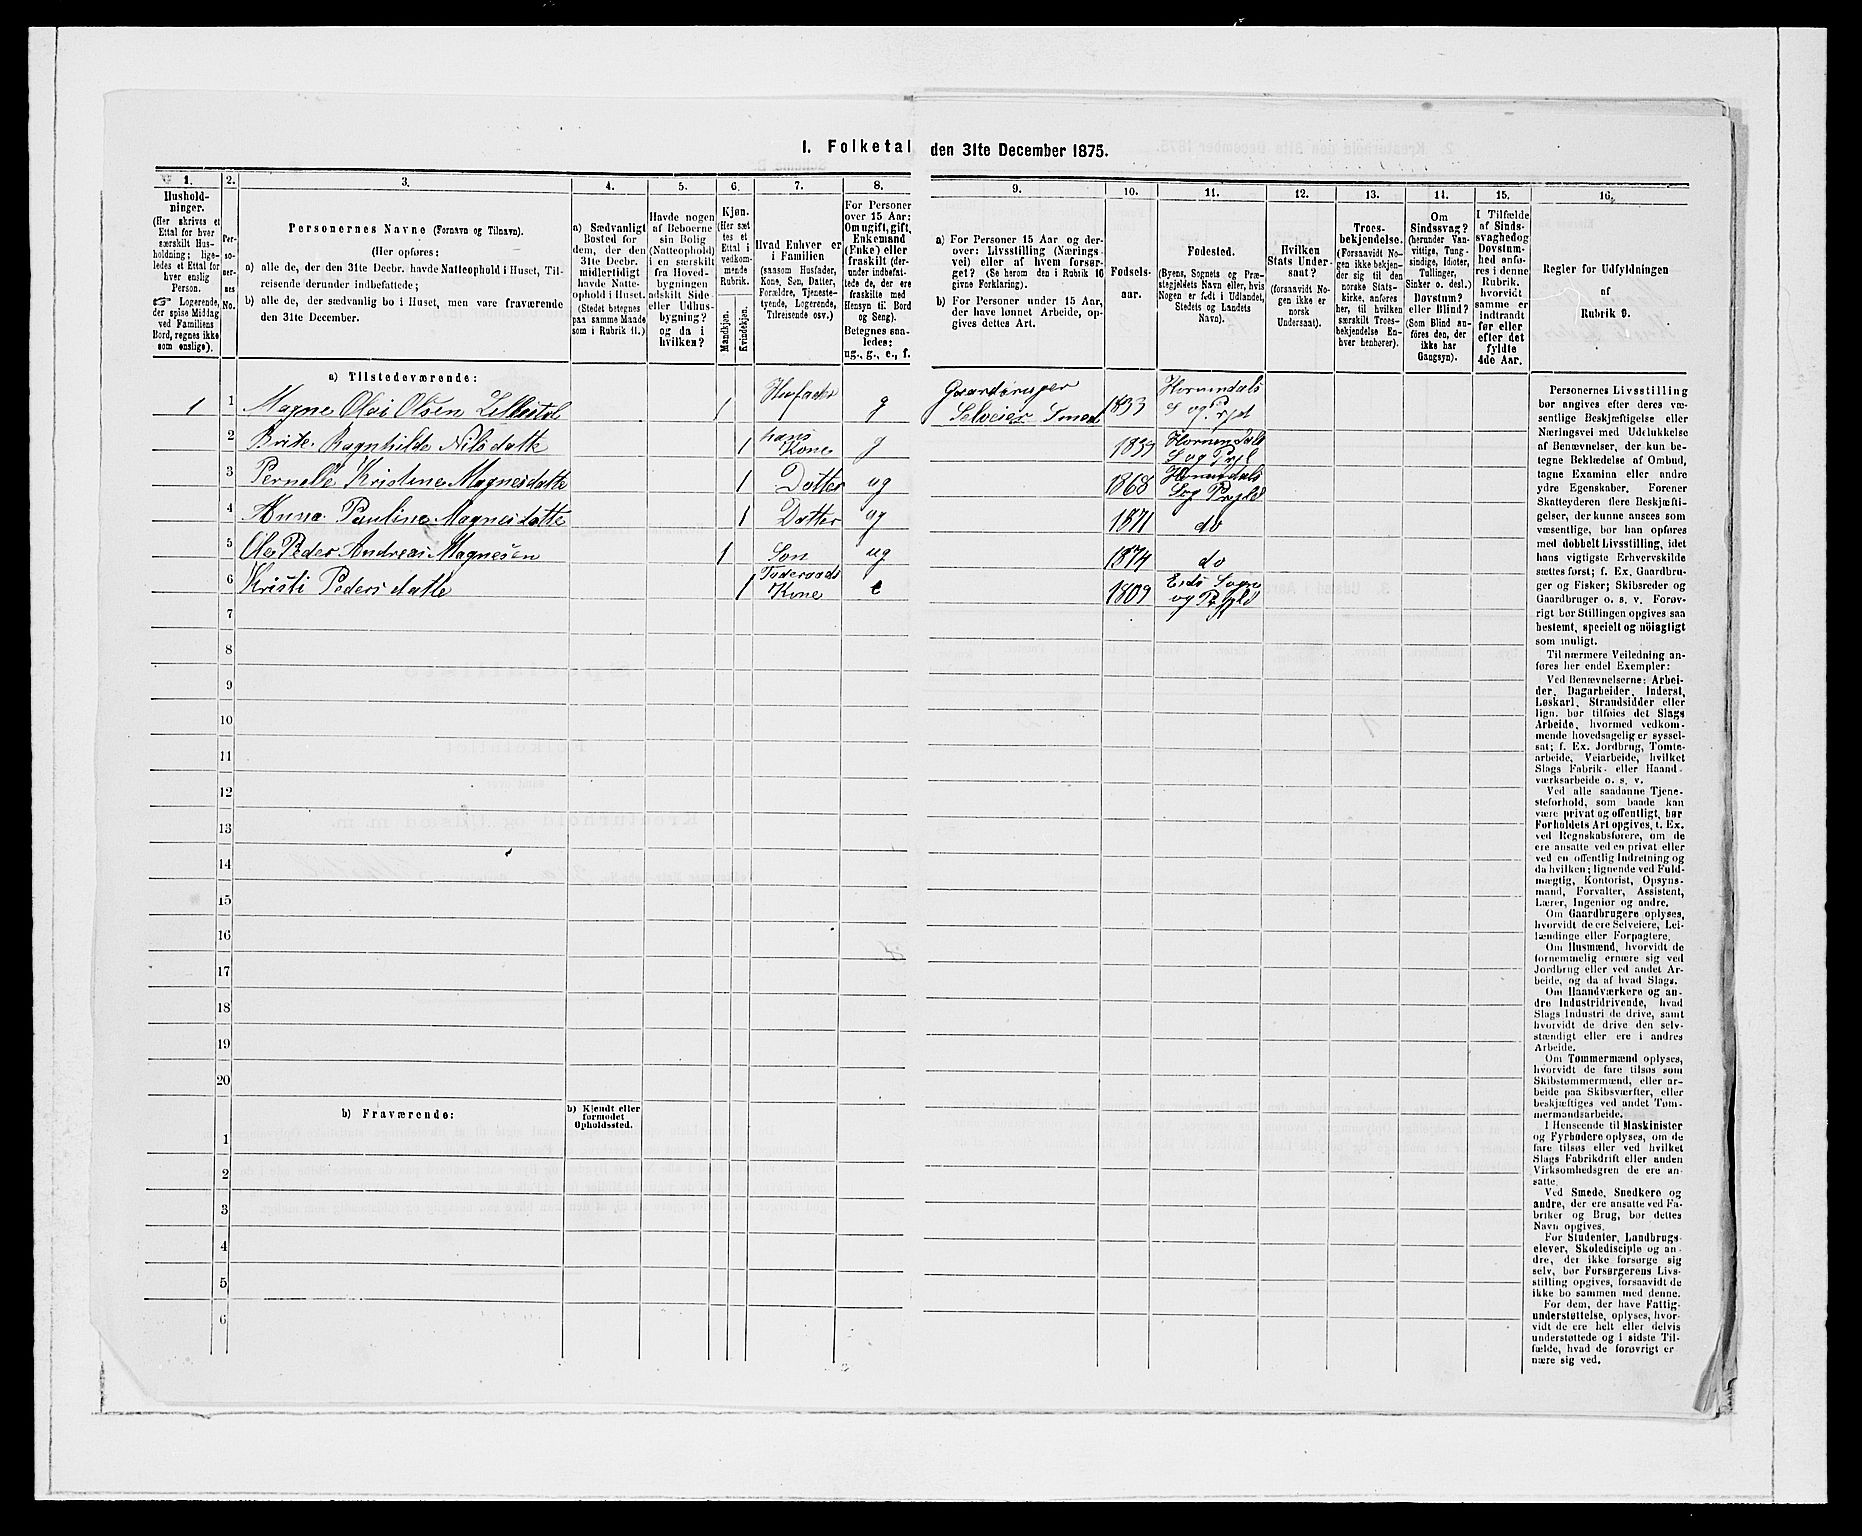 I. Folketal den 31te December 1875.
1.
Hushold-
ninger.
(Her skrives et
Ettal for hver
særskilt Hus-
holdning; lige-
ledes et Ettal for
hver enslig
Person.
☞ Logerende,
der spise Middag
ved Familiens
Bord, regnes ikke
som enslige).
2.
Per-
so-
ner-
nes
No.
3.
Personernes Navne (Fornavn og Tilnavn).
(Her opføres:
a) alle de, der den 31te Decbr. havde Natteophold i Huset, Til-
reisende derunder indbefattede;
b) alle de, der sædvanlig bo i Huset, men vare fraværende
den 31te December.
4.
a) Sædvanligt
Bosted for
dem, der den
31te Decbr.
midlertidigt
havde Natte-
ophold i Huset.
(Stedet betegnes
paa samme Maade
som i Rubrik 11.)
5.
Havde nogen
af Beboerne
sin Bolig
(Natteophold)
i en særskilt
fra Hoved-
bygningen
adskilt Side-
eller Udhus-
bygning?
og da i
hvilken?
6.
Kjøn.
(Her sæt-
tes et
Ettal i
vedkom-
mende
Rubrik.
Mandkjøn.
Kvindekjøn.
7.
Hvad Enhver er
i Familien
(saasom Husfader,
Kone, Søn, Datter,
Forældre, Tjeneste-
tyende, Logerende,
Tilreisende osv.)
8.
For Personer
over 15 Aar:
Om ugift, gift,
Enkemand
(Enke) eller
fraskilt (der-
under indbefat-
tede de, der ere
fraskilte med
Hensyn til Bord
og Seng).
Betegnes saa-
ledes:
ug., g., e., f.
9.
a) For Personer 15 Aar og der-
over: Livsstilling (Nærings-
vei) eller af hvem forsør-
get? (Se herom den i Rubrik 16
givne Forklaring).
b) For Personer under 15 Aar,
der have lønnet Arbeide, op-
gives dettes Art.
10.
Fødsels-
aar.
11.
Fødested.
(Byens, Sognets og Præ-
stegjeldets Navn eller, hvis
Nogen er født i Udlandet,
Stedets og Landets
Navn).
12.
Hvilken
Stats Under-
saat?
(forsaavidt No-
gen ikke er
norsk
Undersaat).
13.
Troes-
bekjendelse.
(Forsaavidt No-
gen ikke bekjen-
der sig til den
norske Stats-
kirke, anføres
her, til hvilken
særskilt Troes-
bekjendelse En-
hver henhører).
14.
Om
Sindssvag?
(herunder Van-
vittige, Tung-
sindige, Idioter,
Tullinger,
Sinker o. desl.)
Døvstum?
eller Blind?
(Som Blind an-
føres den, der
ikke har
Gangsyn).
15.
I Tilfælde
af Sinds-
svaghed og
Døvstum-
hed anfø-
res i denne
Rubrik,
hvorvidt
samme er
indtraadt
før eller
efter det
fyldte
4de Aar.
16.
Regler for Udfyldningen
af
Rubrik 9.
a) Tilstedeværende:
1 1 Magne Olai Olsen Lillestøl 1 Husfader g Gaardbruger Selveier Smed 1833 Hornindals S og Prjd
2 Brite Ragnhilde Nilsdatte 1 hans Kone g 1839 Hornindals S og Prjl
3 Pernelle Kristine Magnesdatte 1 Datter ug 1868 Hornindals Sog Prgld
4 Anna Pauline Magnesdatte 1 Datter ug 1871 do
5 Ole Peder Andreas Magnesen 1 Søn ug 1874 do
6 Kristi Pedersdatte 1 Føderaads Kone e 1809 Eids Sogn og Prgjld
7
8
9
10
11
12
13
14
15
16
17
18
19
20
b) Fraværende:
b) Kjendt eller
formodet
Opholdssted.
1
2
3
4
5
6
Personernes Livsstilling
bør angives efter deres væ-
sentlige Beskjæftigelse eller
Næringsvei med Udelukkelse
af Benævnelser, der kun be-
tegne Beklædelse af Ombud,
tagne Examina eller andre
ydre Egenskaber. Forener
Skatteyderen flere Beskjæfti-
gelser, der kunne ansees som
væsentlige, bør han opføres
med dobbelt Livsstilling, idet
hans vigtigste Erhvervskilde
sættes først; f. Ex. Gaardbru-
ger og Fisker; Skibsreder og
Gaardbruger o. s. v. Forøv-
rigt bør Stillingen opgives saa
bestemt, specielt og nøiagtigt
som muligt.
Til nærmere Veiledning an-
føres her endel Exempler:
Ved Benævnelserne: Arbei-
der, Dagarbeider, Inderst,
Løskarl, Strandsidder eller
lign. bør tilføies det Slags
Arbeide, hvormed vedkom-
mende hovedsagelig er syssel-
sat; f. Ex. Jordbrug, Tomte-
arbeide, Veiarbeide, hvilket
Slags Fabrik- eller Haand-
værksarbeide o. s. v.
Ved alle saadanne Tjene-
steforhold, som baade kan
være privat og offentligt, bør
Forholdets Art opgives, t. Ex.
ved Regnskabsførere, om de
ere ansatte ved en privat eller
ved en offentlig Indretning og
da hvilken; lignende ved Fuld-
mægtig, Kontorist, Opsyns-
mand, Forvalter, Assistent,
Lærer, Ingeniør og andre.
Om Gaardbrugere oplyses,
hvorvidt de ere Selveiere, Lei-
lændinge eller Forpagtere.
Om Husmænd, hvorvidt de
fornemmelig ernære sig ved
Jordbrug eller ved andet Ar-
beide, og da af hvad Slags.
Om Haandværkere og an-
dre Industridrivende, hvad
Slags Industri de drive, samt
hvorvidt de drive den selv-
stændigt eller ere i andres
Arbeide.
Om Tømmermænd oplyses,
hvorvidt de fare tilsøs som
Skibstømmermænd, eller ar-
beide paa Skibsværfter, eller
beskjæftiges ved andet Tøm-
mermandsarbeide.
I Henseende til Maskinister
og Fyrbødere oplyses, om de
fare tilsøs eller ved hvilket
Slags Fabrikdrift eller anden
Virksomhedsgren de ere an-
satte.
Ved Smede, Snedkere og
andre, der ere ansatte ved Fa-
briker og Brug, bør dettes
Navn opgives.
For Studenter, Landbrugs-
elever, Skoledisciple og an-
dre, der ikke forsørge sig
selv, bør Forsørgerens Livs-
stilling opgives, forsaavidt de
ikke bo sammen med denne.
For dem, der have Fattig-
understøttelse, oplyses, hvor-
vidt de ere helt eller delvis
understøttede og i sidste Til-
fælde, hvad de forøvrigt er
nære sig ved.